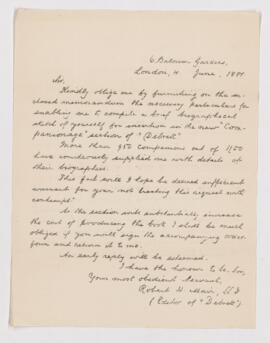 6 Balcon Gardens,
London, W June, 1887
Sir,
Kindly oblige me by furnishing on the en-
closed memorandum the necessary particulars for
enabling me to compile a brief biographical
sketch of yourself for insertion in the new "Com-
panionage" section of "Debrett."
More than 950 Companions out of 1,100
have courteously supplied me with details of
their biographies.
This fact will I hope be deemed sufficient
warrant for your not treating this request with
contempt.
As the section will substantially increase
the cost of producing the book I shall be much
obliged if you will sign the accompanying order
form and return it to me.
An early reply will be esteemed.
I have the honour to be, Sir,
Your most obedient Servant,
Robert H. Mair, LL.D
(Editor of "Debrett")